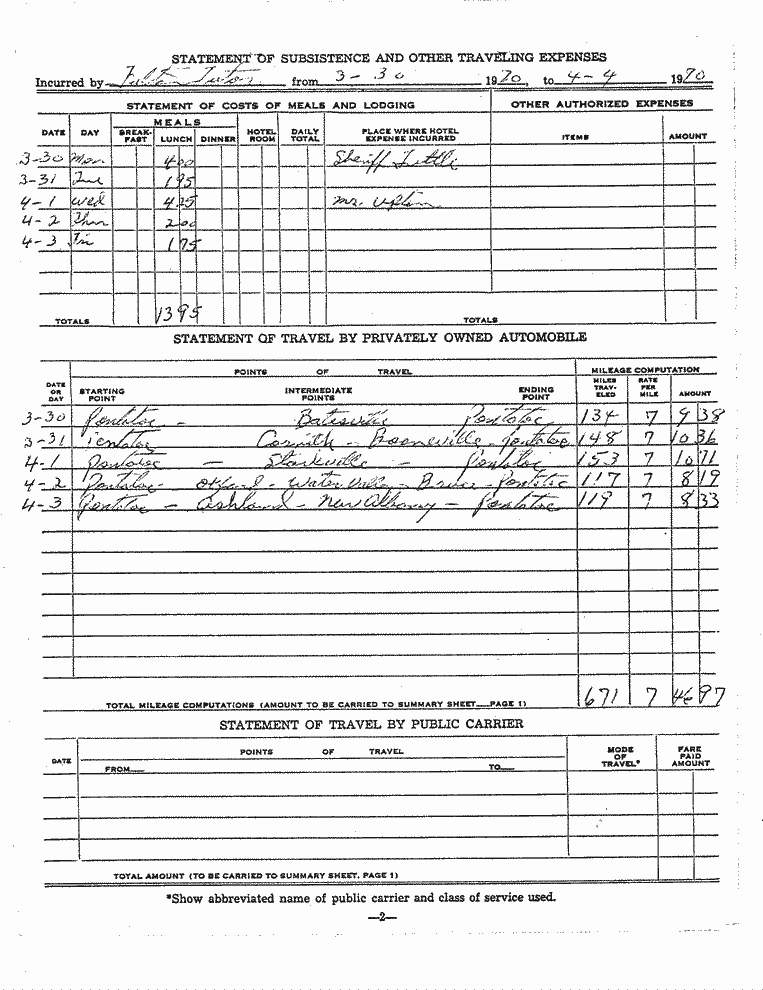 STATEMENT OF SUBSISTENCE AND OTHER TRAVELING EXPENSES
Incurred by from 3-30 1970, to 4-4 1970
STATEMENT OF COSTS OF MEALS AND LODGING OTHER AUTHORIZED EXPENSES
MEALS
DATE DAY BREAK-FAST LUNCH DINNER HOTEL ROOM DAILY TOTAL PLACE WHERE HOTEL EXPENSE INCURRED ITEMS AMOUNT
3-30 Mon 400 Sheriff
3-31 Tue 195
4-1 Wed 425 Mr.
4-2 Thur 200
4-3 Fri 175
TOTALS 1395 TOTALS
STATEMENT OF TRAVEL BY PRIVATELY OWNED AUTOMOBILE
POINTS OF TRAVEL MILEAGE COMPUTATION
DATE OR DAY STARTING POINT INTERMEDIATE POINTS ENDING POINT MILES TRAV-ELED RATE PER MILE AMOUNT
3-30 Pontotoc - Batesville Pontotoc 134 7 9 38
3-31 Pontotoc Corinth - Booneville - Pontotoc 148 7 10 36
4-1 Pontotoc - Starkville - Pontotoc 153 7 10 71
4-2 Pontotoc - Oxford - Water Valley - Bruce - Pontotoc 117 7 8 19
4-3 Pontotoc - Ashland - New Albany - Pontotoc 119 7 8 33
TOTAL MILEAGE COMPUTATIONS (AMOUNT TO BE CARRIED TO SUMMARY SHEET—PAGE 1) 671 7 46 97
STATEMENT OF TRAVEL BY PUBLIC CARRIER
DATE POINTS OF TRAVEL MODE OF TRAVEL* FARE PAID AMOUNT
FROM— TO—
TOTAL AMOUNT (TO BE CARRIED TO SUMMARY SHEET, PAGE 1)
*Show abbreviated name of public carrier and class of service used.
—2—